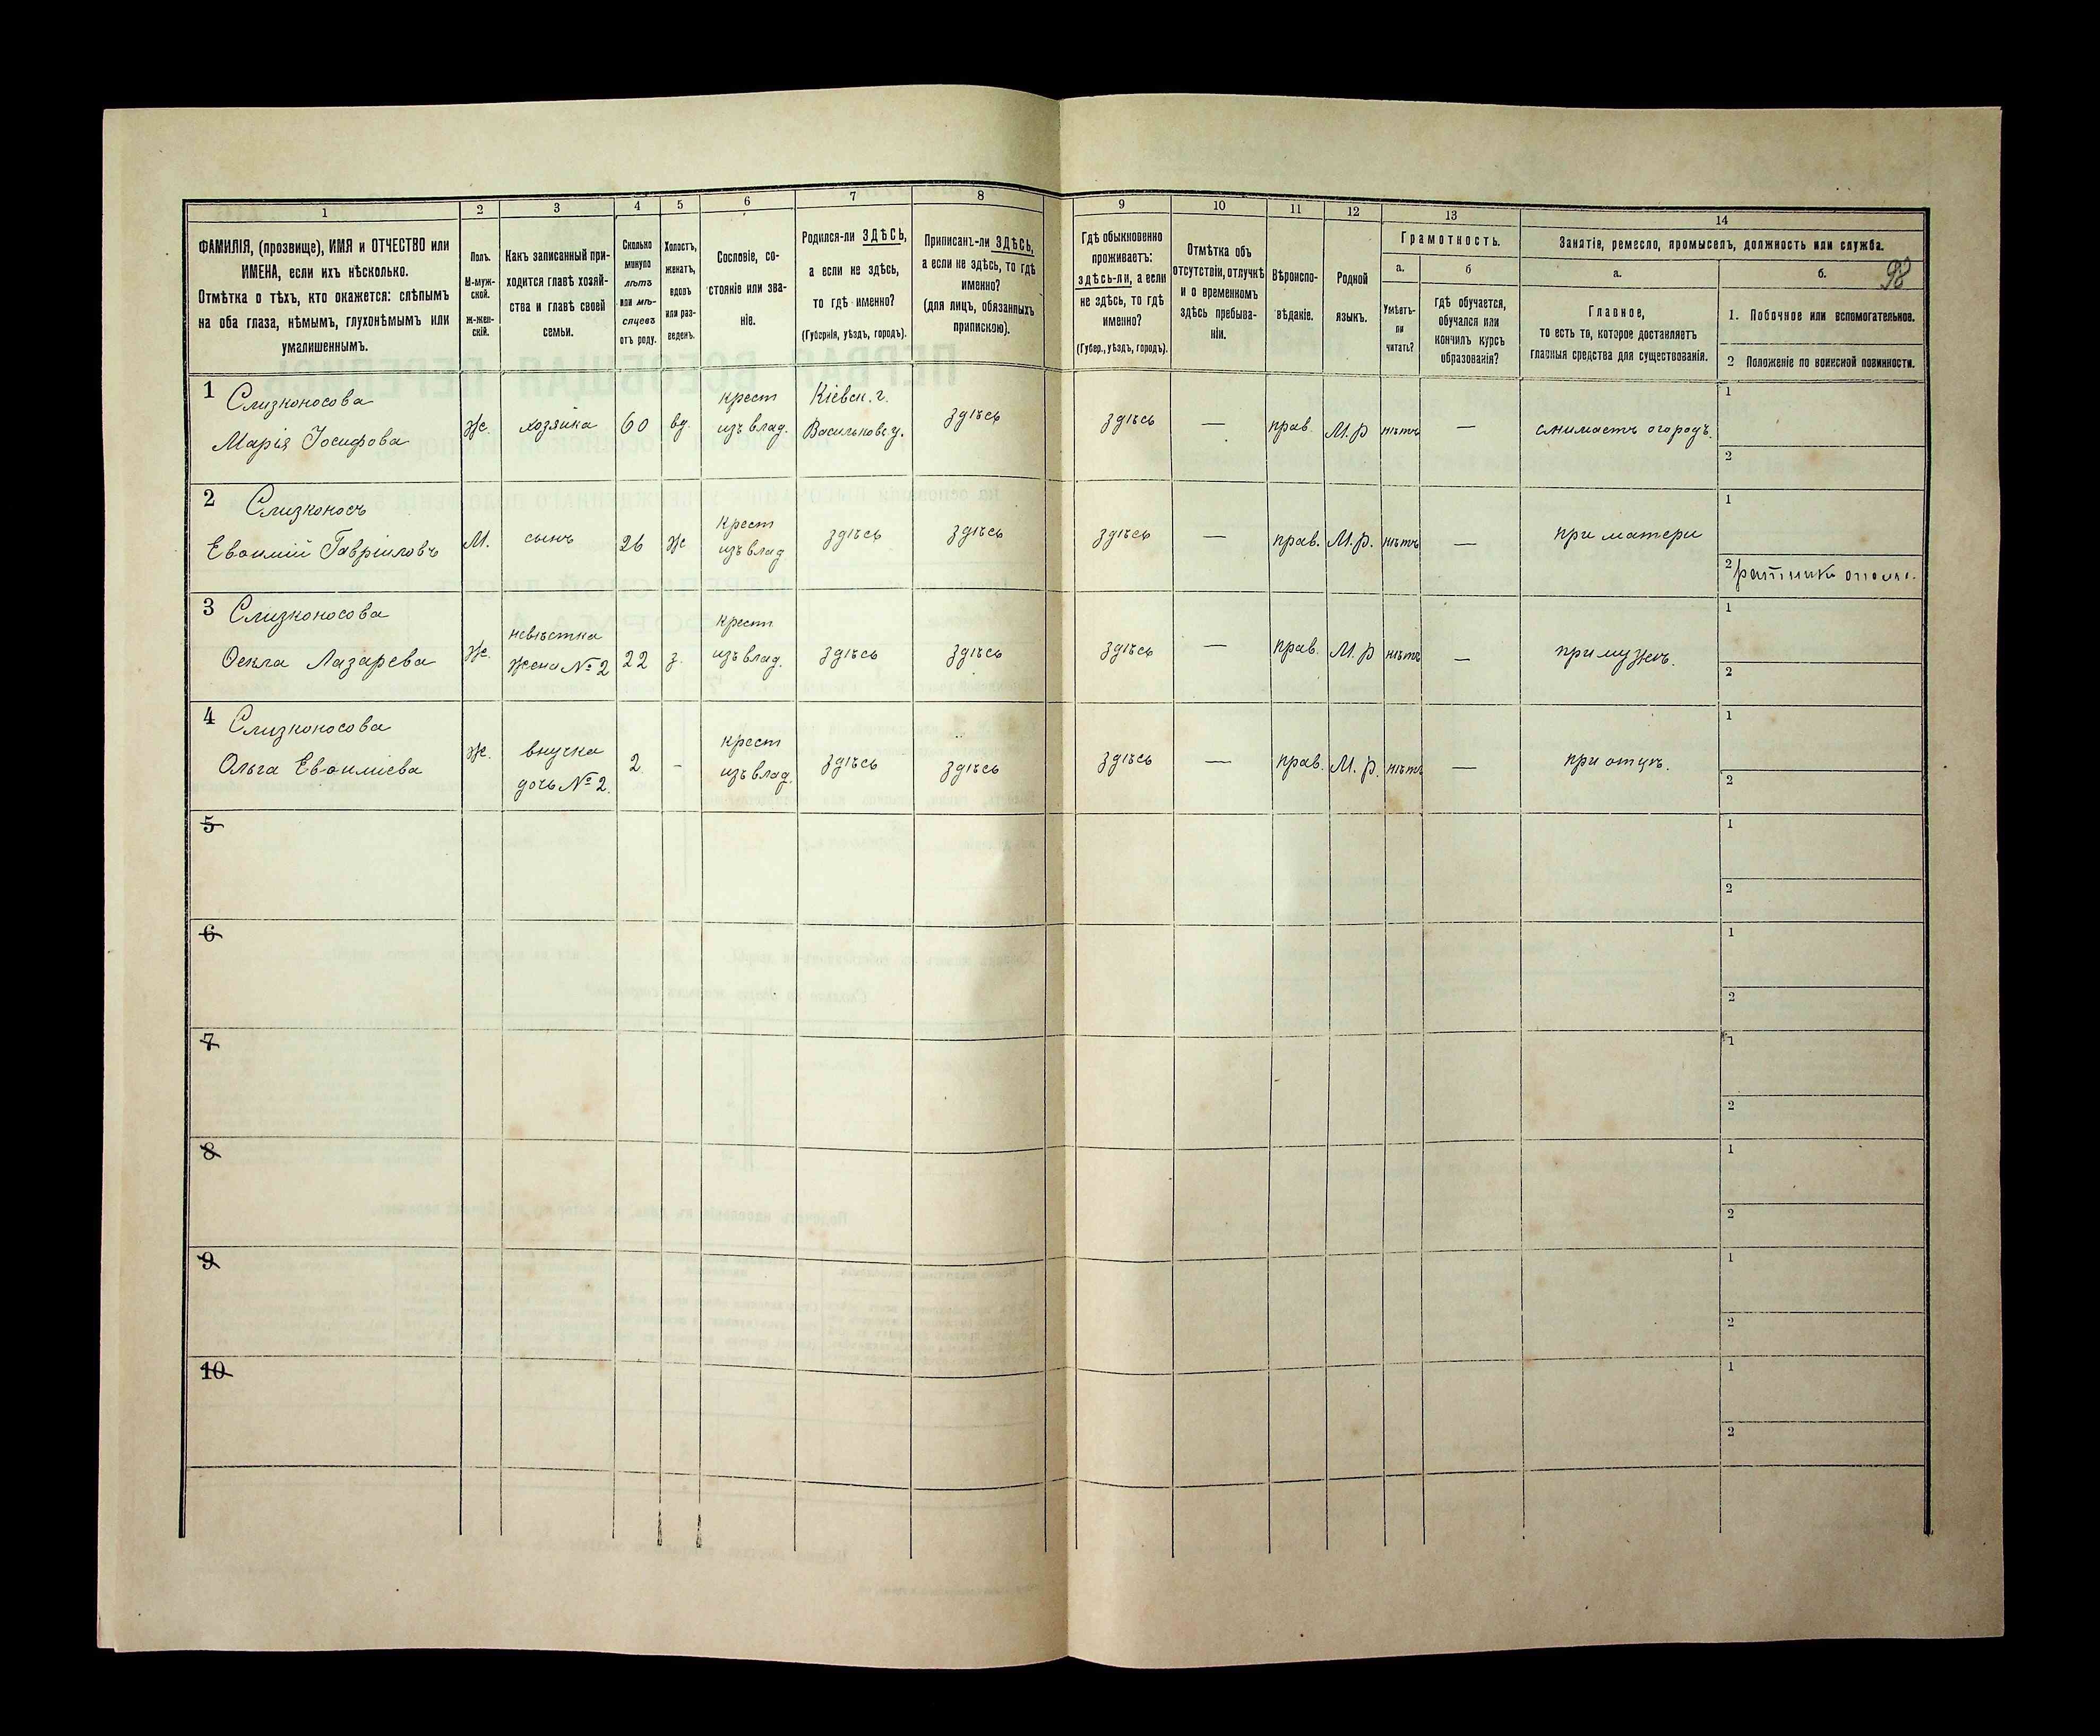 1 2 3 4 5 6 7 8 9 10 11 12 13 14
98
ФАМИЛІЯ, (прозвище), ИМЯ и ОТЧЕСТВО или
ИМЕНА, если ихъ нѣсколько.
Отмѣтка о тѣхъ, кто окажется: слѣпымъ
на оба глаза, нѣмымъ, глухонѣмымъ или
умалишеннымъ.
Полъ.
М-муж-
ской.
Ж-жен-
скій.
Какъ записанный при-
ходится главѣ хозяй-
ства и главѣ своей
семьи.
Сколько
минуло
лѣтъ
или мѣ-
сяцевъ
отъ роду.
Холостъ,
женатъ,
вдовъ
или раз-
веденъ.
Сословіе, со-
стояніе или зва-
ніе.
Родился-ли ЗДѢСЬ,
а если не здѣсь,
то гдѣ именно?
(Губернія, уѣздъ, городъ).
Приписанъ-ли ЗДѢСЬ,
а если не здѣсь, то гдѣ
именно?
(для лицъ, обязанныхъ
припискою).
Гдѣ обыкновенно
проживаетъ:
здѣсь-ли, а если
не здѣсь, то гдѣ
именно?
(Губер., уѣздъ, городъ).
Отмѣтка объ
отсутствіи, отлучкѣ
и о временномъ
здѣсь пребыва-
ніи.
Вѣроиспо-
вѣданіе.
Родной
языкъ.
Грамотность.
а.
Умѣетъ-
ли
читать?
б
гдѣ обучается,
обучался или
кончилъ курсъ
образованія?
Занятіе, ремесло, промыселъ, должность или служба.
а.
Главное,
то есть то, которое доставляетъ
главныя средства для существованія.
б.
1. Побочное или вспомогательное.
2 Положеніе по воинской повинности.
1 Слизконосова
Марія Іосифова
Ж. хозяйка 60 вд.
крест
изъ влад.
Кіевск. г.
Васильковс. у.
здѣсь здѣсь — прав. М.р нѣтъ — снимаетъ огородъ.
1
2
2 Слизконосъ
Евѳимій Гавріиловъ
М. сынъ 26 ж
крест
изъ влад
здѣсь здѣсь здѣсь — прав. М.р. нѣтъ — при матери
1
2 ратникъ ополч.
3 Слизконосова
Ѳекла Лазарева
Ж.
невѣстка
жена № 2
22 з.
крест
изъ влад.
здѣсь здѣсь здѣсь — прав. М.р нѣтъ — при мужѣ.
1
2
4 Слизконосова
Ольга Евѳиміева
Ж.
внучка
дочь № 2.
2 -
крест
изъ влад.
здѣсь здѣсь здѣсь — прав. М.р. нѣтъ — при отцѣ.
1
2
5
1
2
6
1
2
7
1
2
8
1
2
9
1
2
10
1
2